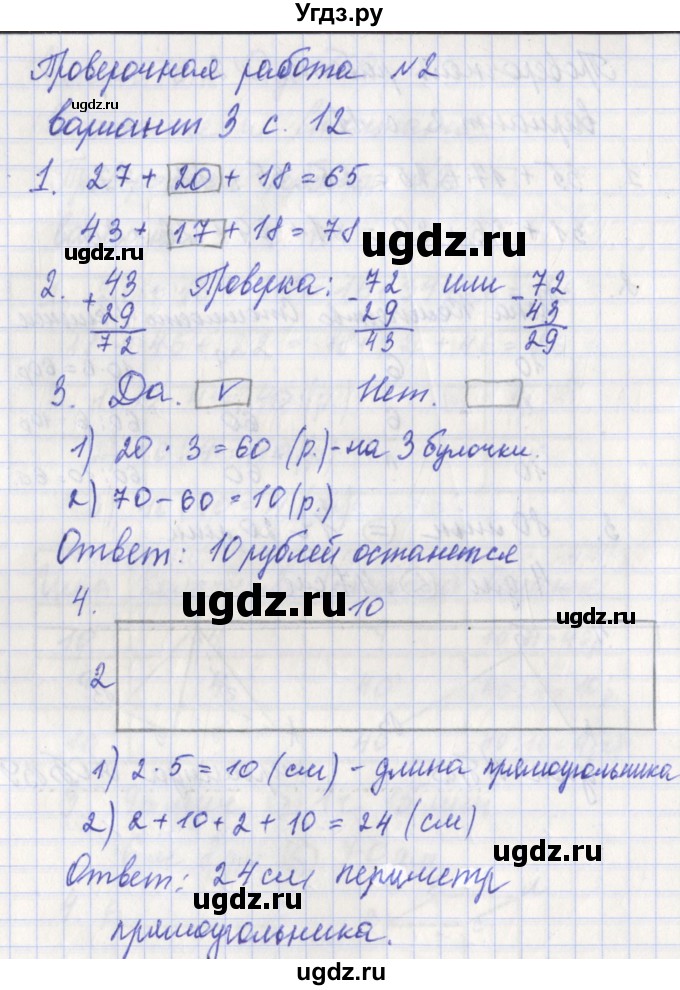 Угдз.ру
Проверочная работа №2
вариант 3 с. 12
1. 27 + 20 + 18 = 65
43 + 17 + 18 = 78
2. + 43 Проверка: - 72 или - 72
29 29 43
72 43 29
3. Да. v Нет.
1) 20 · 3 = 60 (р.) - на 3 булочки.
2) 70 - 60 = 10 (р.)
Ответ: 10 рублей останется
4. 10
2
1) 2 · 5 = 10 (см) - длина прямоугольника
2) 2 + 10 + 2 + 10 = 24 (см)
Ответ: 24 см периметр
прямоугольника.
ugdz.ru
ugdz.ru
ugdz.ru
ugdz.ru
ugdz.ru
ugdz.ru
ugdz.ru
ugdz.ru
ugdz.ru
ugdz.ru
ugdz.ru
ugdz.ru
ugdz.ru